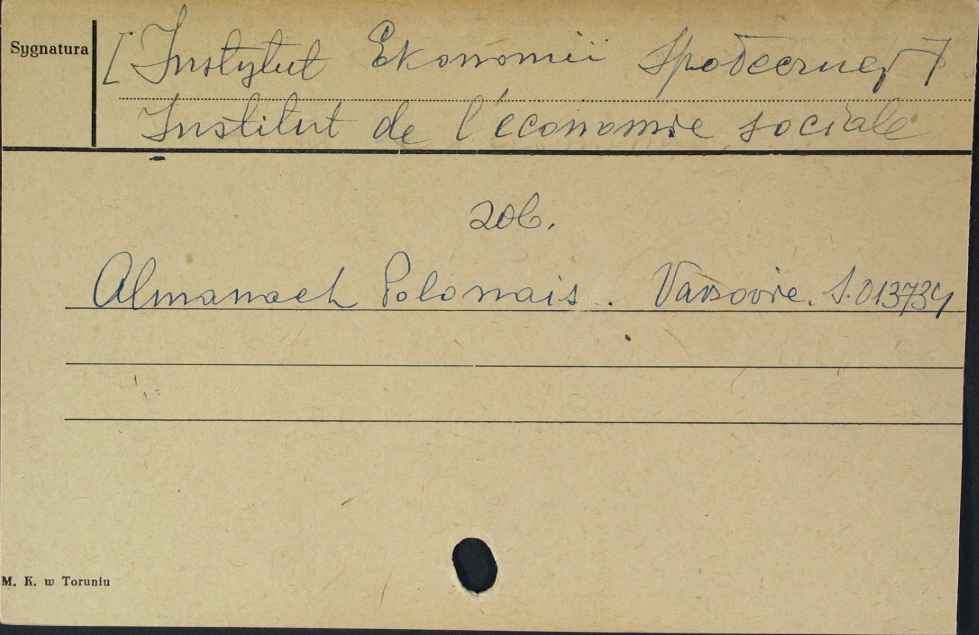 Sygnatura
[Instytut Ekonomii Społecznej]
Institut de l'économie sociale
zob.
Almanach Polonais. Varsovie. S.013734
M. K. w Toruniu